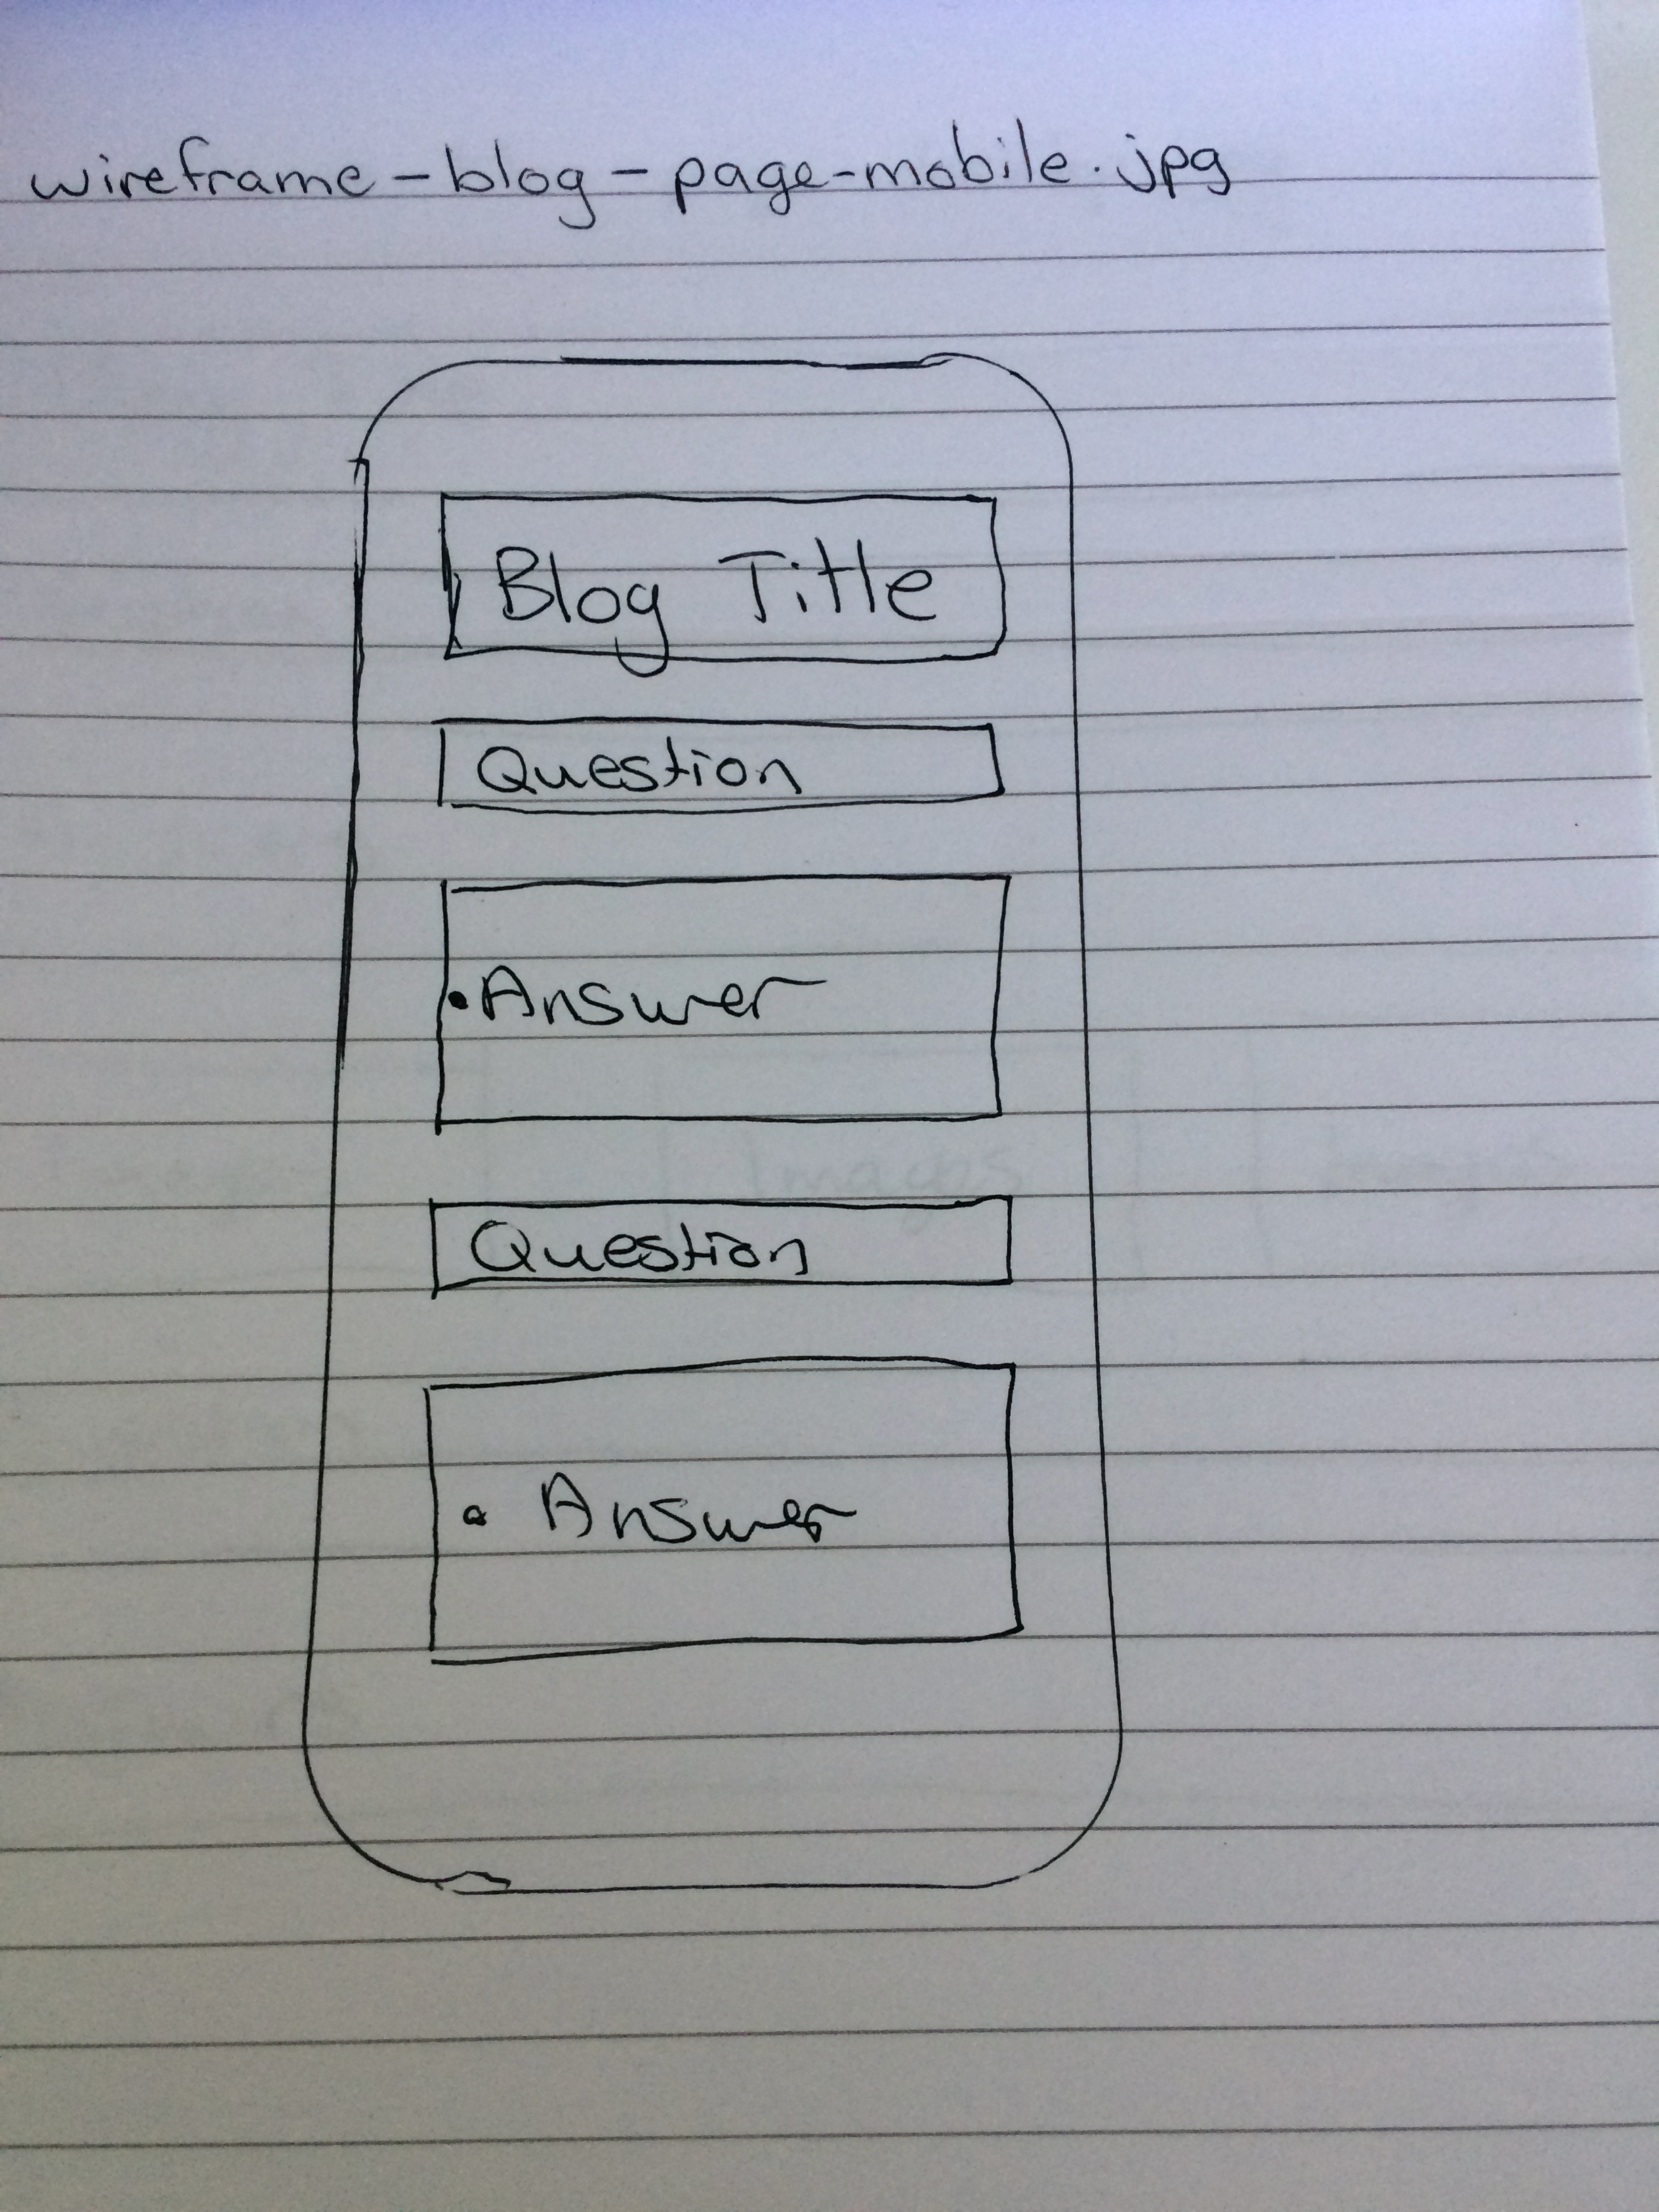 wireframe-blog-page-mobile.jpg
Blog Title
Question
•Answer
Question
• Answer